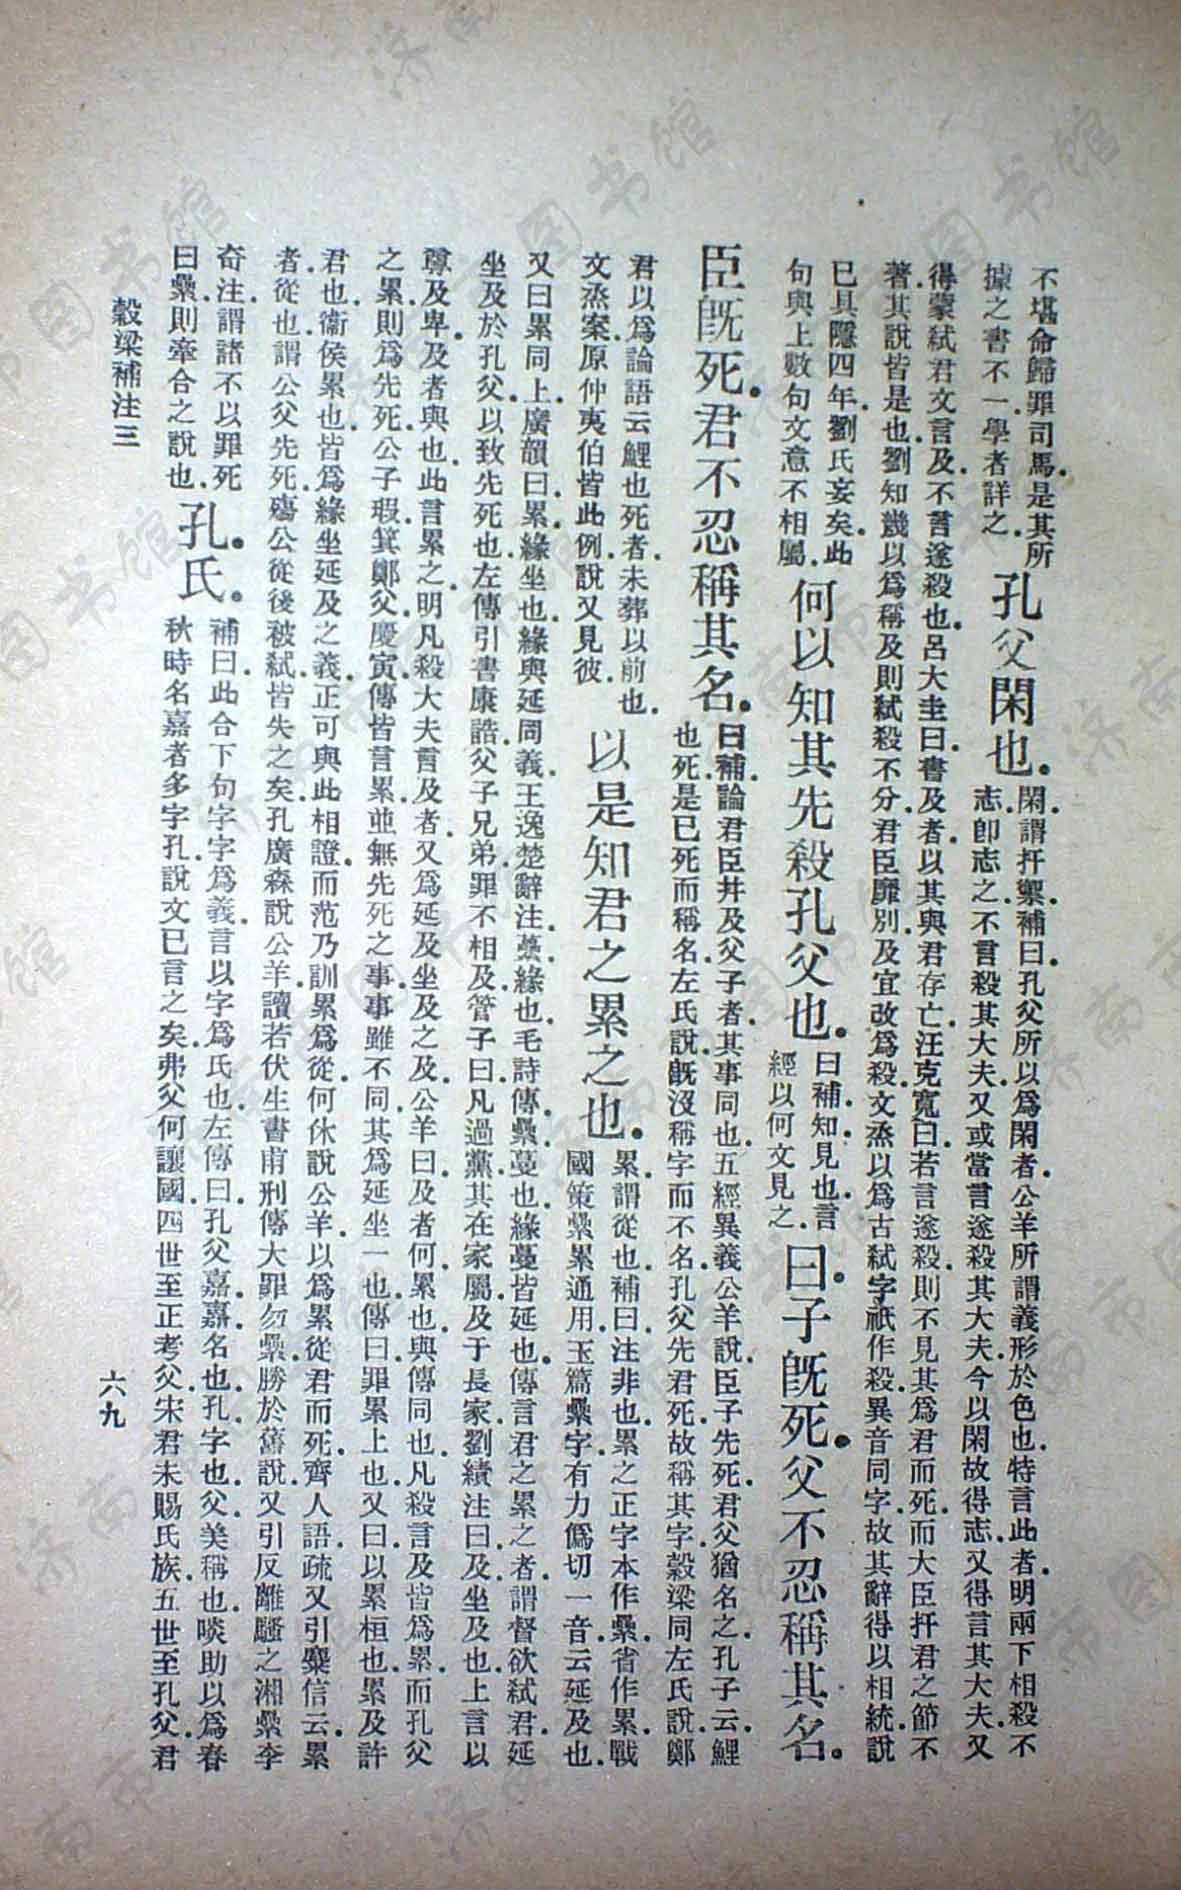 不堪命歸罪司馬是其所
據之書不一學者詳之
孔父閑也
閑謂扞禦補曰孔父所以爲閑者公羊所謂義形於色也特言此者明兩下相殺不
志卽志之不言殺其大夫又或當言遂殺其大夫今以閑故得志又得言其大夫又
得蒙弒君文言及不言遂殺也呂大圭曰書及者以其與君存亡汪克寬曰若言遂殺則不見其爲君而死而大臣扞君之節不
著其說皆是也劉知幾以爲稱及則弒殺不分君臣靡別及宜改爲殺文烝以爲古弒字祇作殺異音同字故其辭得以相統說
已具隱四年劉氏妄矣此
句與上數句文意不相屬
何以知其先殺孔父也
補曰知見也言
經以何文見之
曰子旣死父不忍稱其名
臣旣死君不忍稱其名
補曰論君臣幷及父子者其事同也五經異義公羊說臣子先死君父猶名之孔子云鯉
也死是已死而稱名左氏說旣沒稱字而不名孔父先君死故稱其字穀梁同左氏說鄭
君以爲論語云鯉也死者未葬以前也
文烝案原仲夷伯皆此例說又見彼
以是知君之累之也
累謂從也補曰注非也累之正字本作纍省作累戰
國策纍累通用玉篇纍字有力僞切一音云延及也
又曰累同上廣韻曰累緣坐也緣與延同義王逸楚辭注蘽緣也毛詩傳纍蔓也緣蔓皆延也傳言君之累之者謂督欲弒君延
坐及於孔父以致先死也左傳引書康誥父子兄弟罪不相及管子曰凡過黨其在家屬及于長家劉績注曰及坐及也上言以
尊及卑及者與也此言累之明凡殺大夫言及者又爲延及坐及之及公羊曰及者何累也與傳同也凡殺言及皆爲累而孔父
之累則爲先死公子瑕箕鄭父慶寅傳皆言累並無先死之事事雖不同其爲延坐一也傳曰罪累上也又曰以累桓也累及許
君也衞侯累也皆爲緣坐延及之義正可與此相證而范乃訓累爲從何休說公羊以爲累從君而死齊人語疏又引麋信云累
者從也謂公父先死殤公從後被弒皆失之矣孔廣森說公羊讀若伏生書甫刑傳大罪勿纍勝於舊說又引反離騷之湘纍李
奇注謂諸不以罪死
曰纍則牽合之說也
孔氏
補曰此合下句字字爲義言以字爲氏也左傳曰孔父嘉嘉名也孔字也父美稱也啖助以爲春
秋時名嘉者多字孔說文已言之矣弗父何讓國四世至正考父宋君未賜氏族五世至孔父君
穀梁補注三
六九